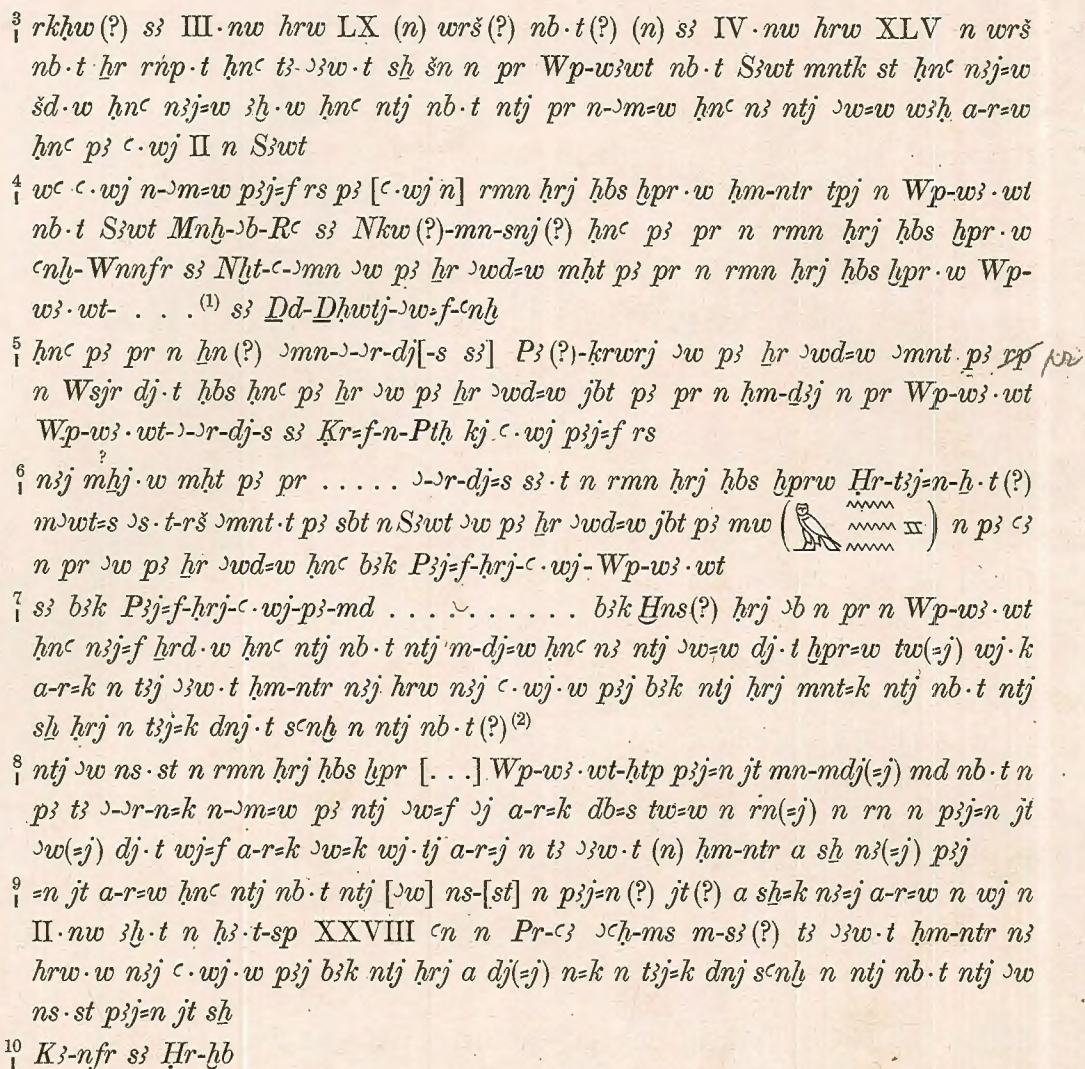 3/1 rkḥw (?) sꜣ III·nw hrw LX (n) wrš (?) nb·t (?) (n) sꜣ IV·nw hrw XLV n wrš
nb·t ẖr rnp·t ḥnꜥ tꜣ-ꜣꜣw·t sẖ šn n pr Wp-wꜣwt nb·t Sꜣwt mntk st ḥnꜥ nꜣj⸗w
šd·w ḥnꜥ nꜣj⸗w ꜣḥ·w ḥnꜥ ntj nb·t ntj pr n-ꜣm⸗w ḥnꜥ nꜣ ntj ꜣw⸗w wꜣḥ a-r⸗w
ḥnꜥ pꜣ ꜥ·wj II n Sꜣwt
4/1 wꜥ ꜥ·wj n-ꜣm⸗w pꜣj⸗f rs pꜣ [ꜥ·wj n] rmn ḥrj ḥbs ḫpr·w ḥm-ntr tpj n Wp-wꜣ·wt
nb·t Sꜣwt Mnḫ-ꜣb-Rꜥ sꜣ Nkw (?)-mn-snj (?) ḥnꜥ pꜣ pr n rmn ḥrj ḥbs ḫpr·w
ꜥnḫ-Wnnfr sꜣ Nḫt-ꜥ-ꜣmn ꜣw pꜣ ḫr ꜣwd⸗w mḥt pꜣ pr n rmn ḥrj ḥbs ḫpr·w Wp-
wꜣ·wt- . . . (1) sꜣ Ḏd-Ḏḥwtj-ꜣw⸗f-ꜥnḫ
5/1 ḥnꜥ pꜣ pr n ḥn (?) ꜣmn-ꜣ-ꜣr-dj[-s sꜣ] Pꜣ (?)-krwrj ꜣw pꜣ ḫr ꜣwd⸗w ꜣmnt pꜣ rp
n Wsjr dj·t ḥbs ḥnꜥ pꜣ ḫr ꜣw pꜣ ḫr ꜣwd⸗w jbt pꜣ pr n ḥm-ḏꜣj n pr Wp-wꜣ·wt
Wp-wꜣ·wt-ꜣ-ꜣr-dj-s sꜣ Ḳr⸗f-n-Ptḥ kj ꜥ·wj pꜣj⸗f rs
6/1 nꜣj mḫj·w ? mḥt pꜣ pr . . . . . ꜣ-ꜣr-dj⸗s sꜣ·t n rmn ḥrj ḥbs ḫprw Ḥr-tꜣj⸗n-ḫ·t (?)
mꜣwt⸗s ꜣs·t-rš ꜣmnt·t pꜣ sbt n Sꜣwt ꜣw pꜣ ḫr ꜣwd⸗w jbt pꜣ mw (𓅓 𓈗 𓈇) n pꜣ ꜥꜣ
n pr ꜣw pꜣ ḫr ꜣwd⸗w ḥnꜥ bꜣk Pꜣj⸗f-ḥrj-ꜥ·wj-Wp-wꜣ·wt
7/1 sꜣ bꜣk Pꜣj⸗f-ḥrj-ꜥ·wj-pꜣ-md . . . . . . . . . . . bꜣk Ḫns (?) ḥrj ꜣb n pr n Wp-wꜣ·wt
ḥnꜥ nꜣj⸗f ẖrd·w ḥnꜥ ntj nb·t ntj m-dj⸗w ḥnꜥ nꜣ ntj ꜣw⸗w dj·t ḫpr⸗w tw(⸗j) wj·k
a-r⸗k n tꜣj ꜣꜣw·t ḥm-ntr nꜣj hrw nꜣj ꜥ·wj·w pꜣj bꜣk ntj ḥrj mnt⸗k ntj nb·t ntj
sẖ ḥrj n tꜣj⸗k dnj·t sꜥnḫ n ntj nb·t (?) (2)
8/1 ntj ꜣw ns·st n rmn ḥrj ḥbs ḫpr [. . .] Wp-wꜣ·wt-ḥtp pꜣj⸗n jt mn-mdj(⸗j) md nb·t n
pꜣ tꜣ ꜣ-ꜣr-n⸗k n-ꜣm⸗w pꜣ ntj ꜣw⸗f ꜣj a-r⸗k db⸗s tw⸗w n rn(⸗j) n rn n pꜣj⸗n jt
ꜣw(⸗j) dj·t wj⸗f a-r⸗k ꜣw⸗k wj·tj a-r⸗j n tꜣ ꜣꜣw·t (n) ḥm-ntr a sẖ nꜣ(⸗j) pꜣj
9/1 ⸗n jt a-r⸗w ḥnꜥ ntj nb·t ntj [ꜣw] ns-[st] n pꜣj⸗n (?) jt (?) a sẖ⸗k nꜣ⸗j a-r⸗w n wj n
II·nw ꜣḫ·t n ḥꜣ·t-sp XXVIII ꜥn n Pr-ꜥꜣ ꜣꜥḥ-ms m-sꜣ (?) tꜣ ꜣꜣw·t ḥm-ntr nꜣ
hrw·w nꜣj ꜥ·wj·w pꜣj bꜣk ntj ḥrj a dj(⸗j) n⸗k n tꜣj⸗k dnj sꜥnḫ n ntj nb·t ntj ꜣw
ns·st pꜣj⸗n jt sẖ
10/1 Kꜣ-nfr sꜣ Ḥr-ḫb